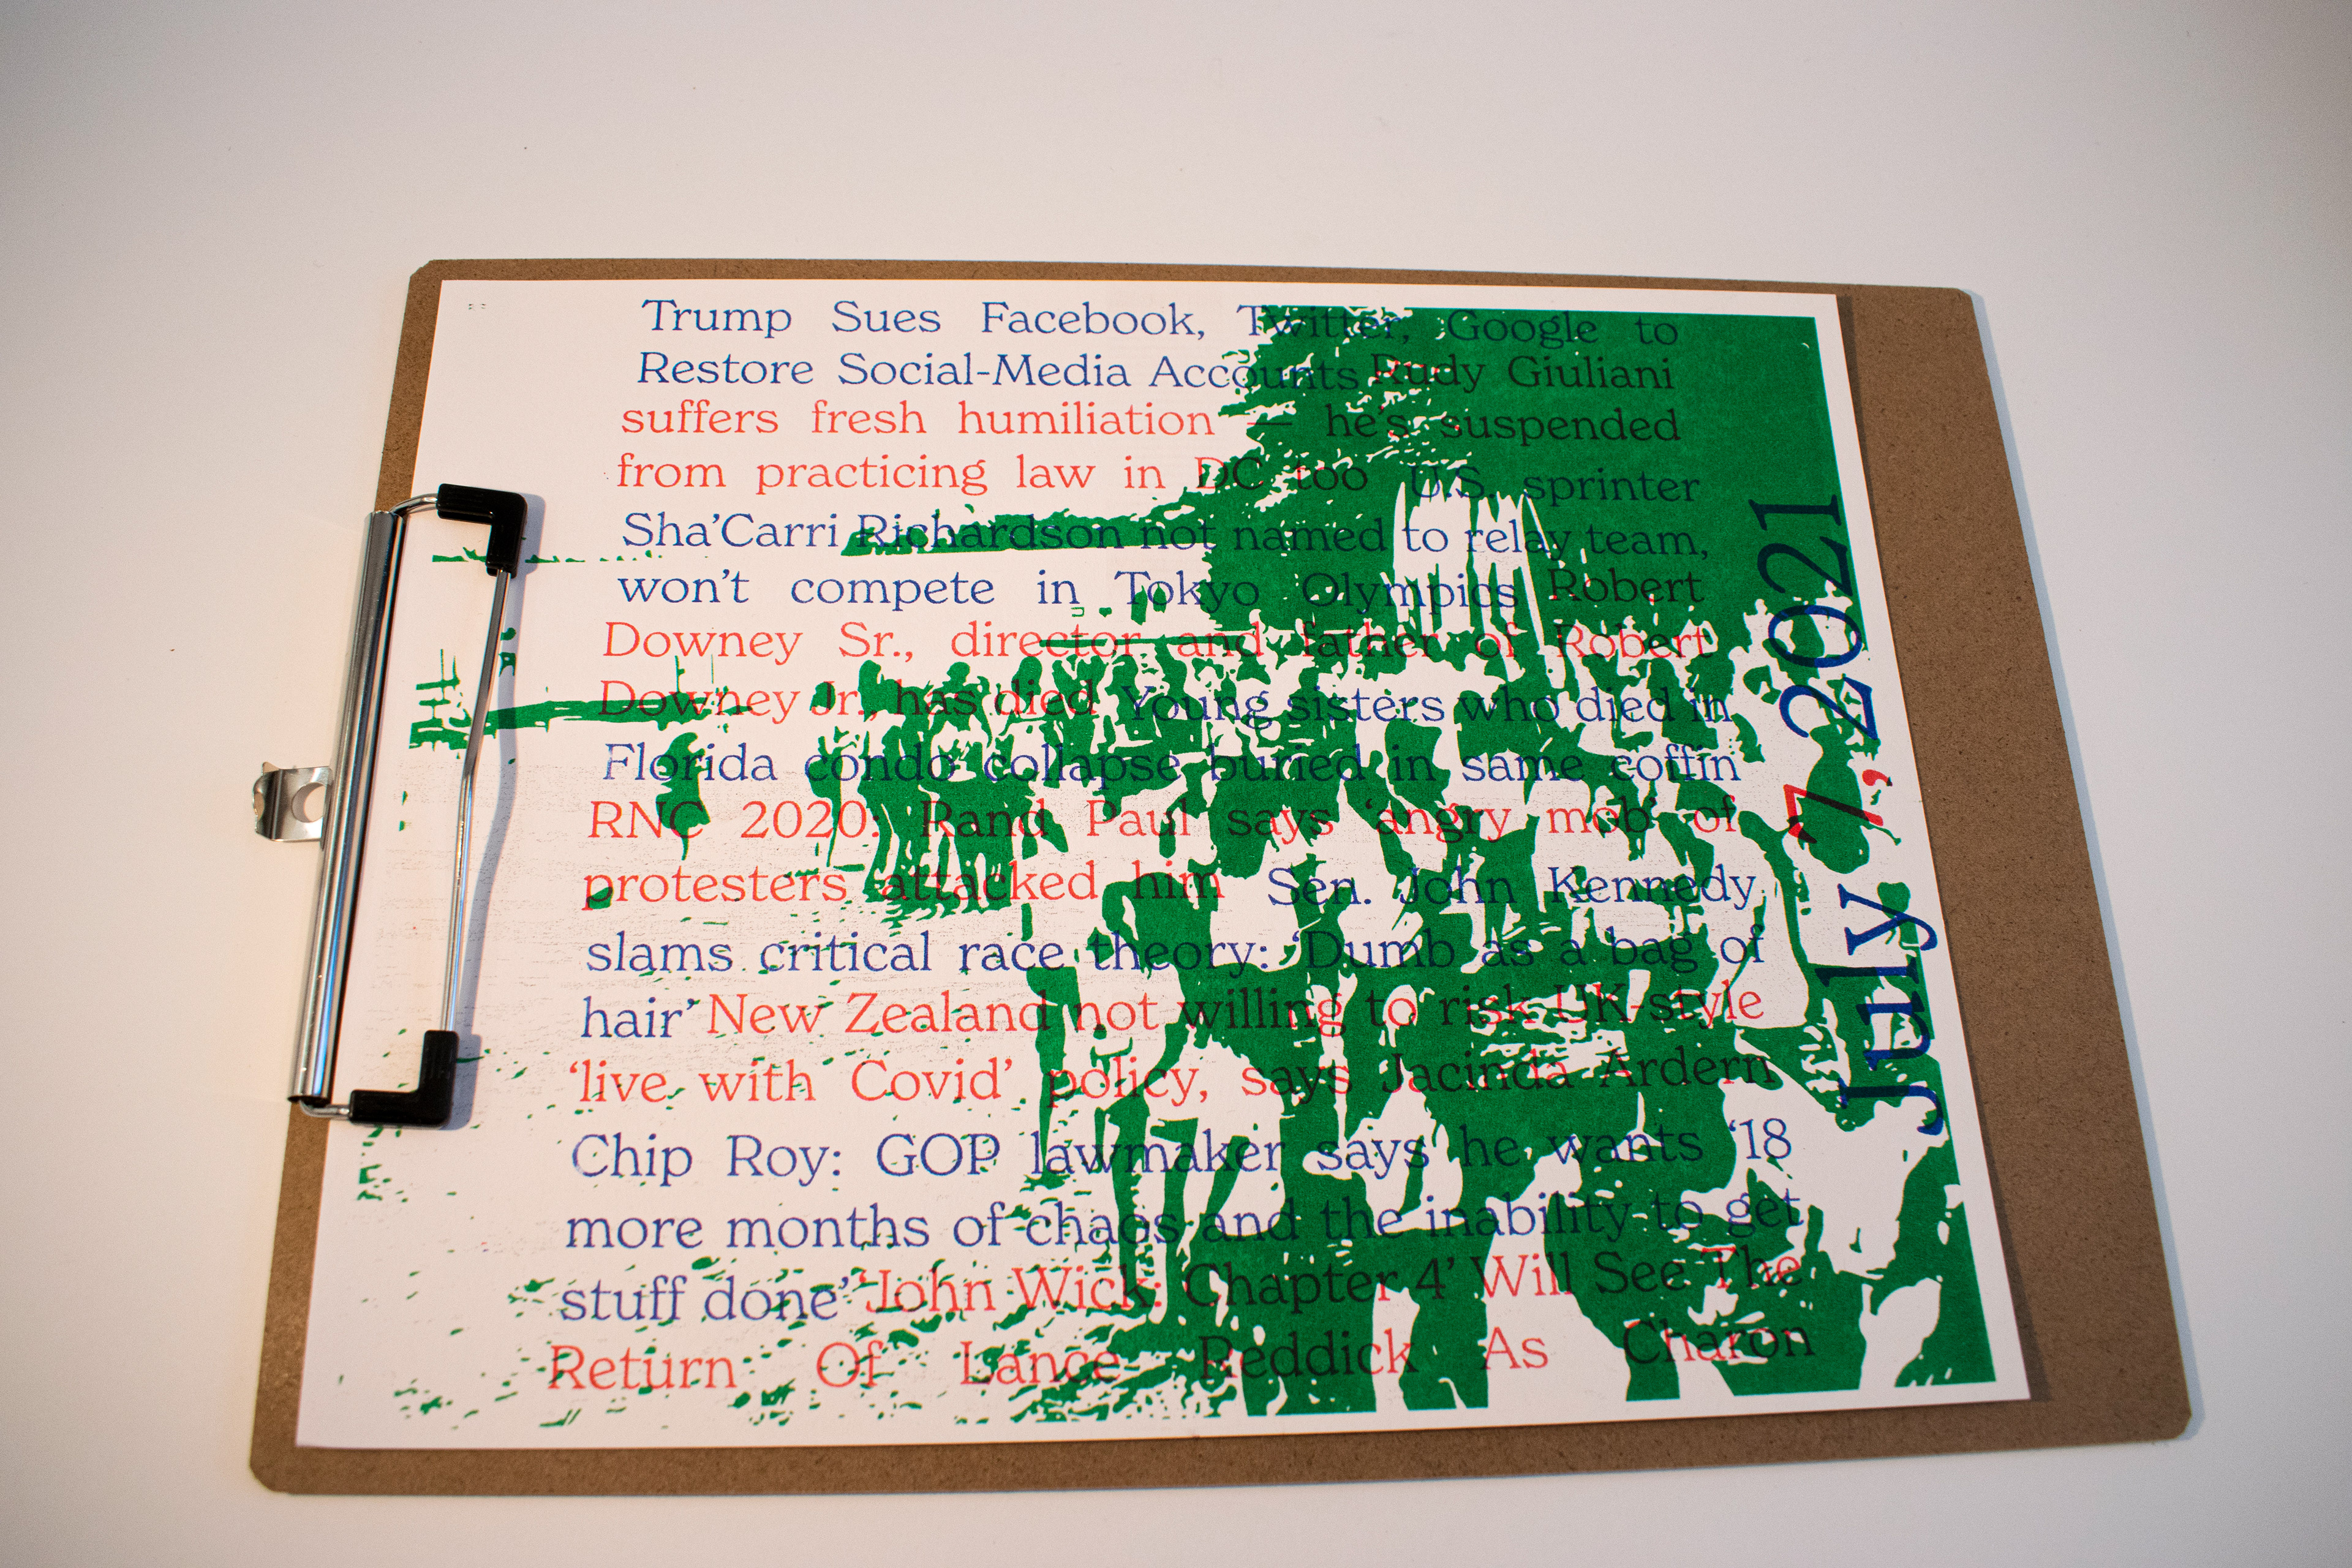 Trump Sues Facebook, Twitter, Google to
Restore Social-Media Accounts Rudy Giuliani
suffers fresh humiliation — he's suspended
from practicing law in DC too U.S. sprinter
Sha’Carri Richardson not named to relay team,
won’t compete in Tokyo Olympics Robert
Downey Sr., director and father of Robert
Downey Jr., has died Young sisters who died in
Florida condo collapse buried in same coffin
RNC 2020: Rand Paul says ‘angry mob’ of
protesters attacked him Sen. John Kennedy
slams critical race theory: ‘Dumb as a bag of
hair’ New Zealand not willing to risk UK-style
‘live with Covid’ policy, says Jacinda Ardern
Chip Roy: GOP lawmaker says he wants ‘18
more months of chaos and the inability to get
stuff done’ ‘John Wick: Chapter 4’ Will See The
Return Of Lance Reddick As Charon
July 7, 2021